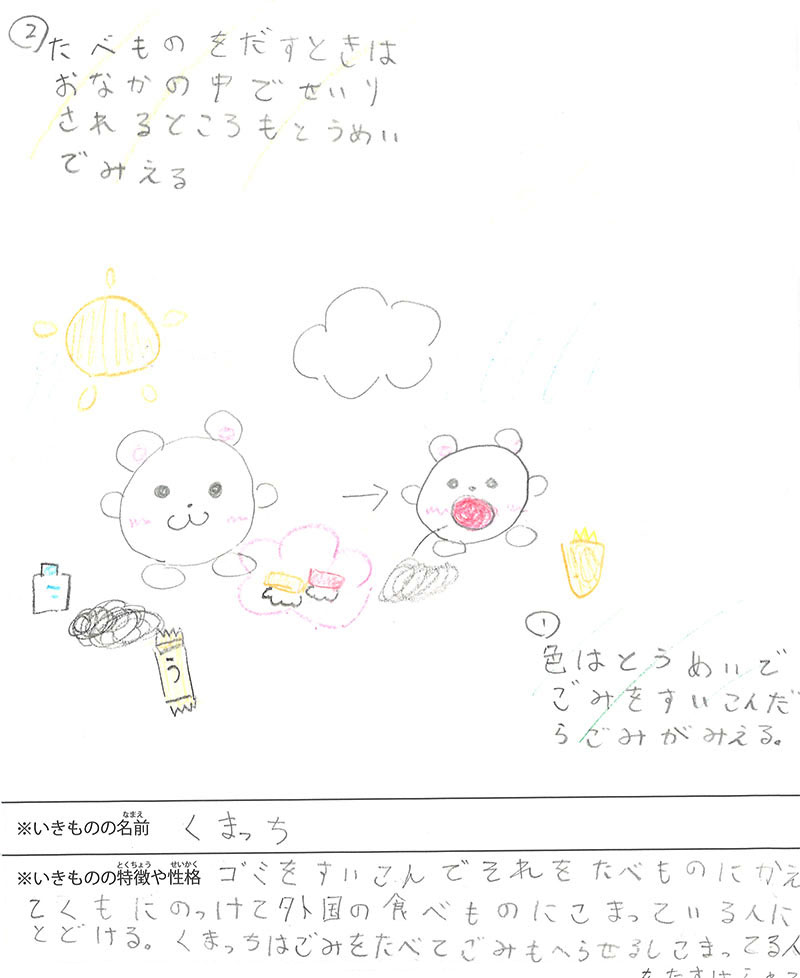 ② たべものをだすときは
おなかの中でせいり
されるところもとうめい
でみえる
う
① 色はとうめいで
ごみをすいこんだ
らごみがみえる。
※いきものの名前 くまっち
なまえ
※いきものの特徴や性格 ゴミをすいこんでそれをたべものにかえ
とくちょう せいかく
てくもにのっけて外国の食べものにこまっている人に
とどける。くまっちはごみをたべてごみもへらせるしこまってる人